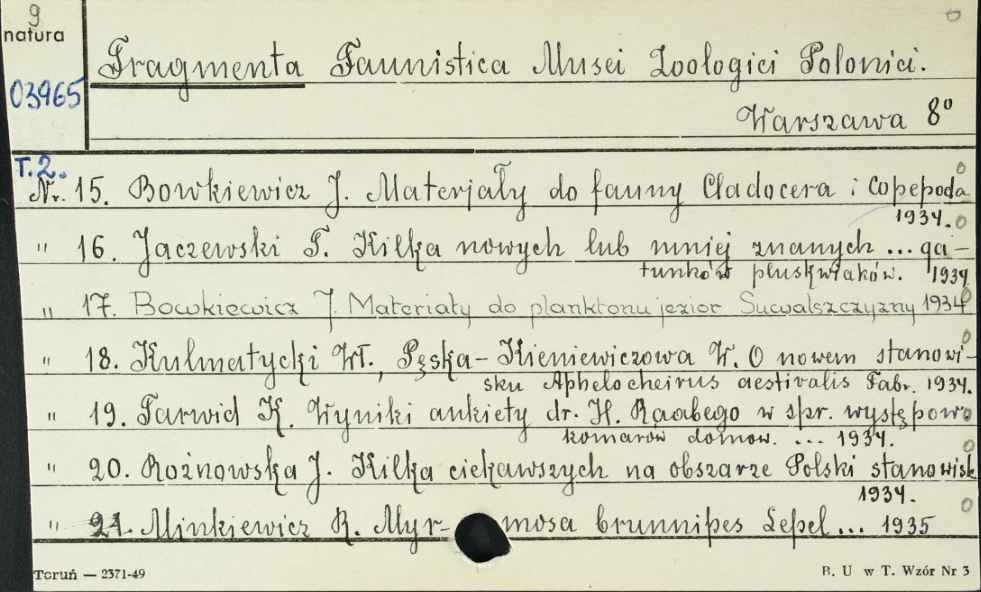 9
natura
03965
Fragmenta Faunistica Musei Zoologici Polonici.
Warszawa 8º
T.2.
Nr. 15. Bowkiewicz J. Materjały do fauny Cladocera i Copepoda
1934.
" 16. Jaczewski T. Kilka nowych lub mniej znanych ... ga-
tunków pluskwiaków. 1934
" 17. Bowkiewicz J. Materiały do planktonu jezior Suwalszczyzny 1934
" 18. Kulmatycki Wł., Pęska-Kieniewiczowa W. O nowem stanowi-
sku Aphelocheirus aestivalis Fabr. 1934.
" 19. Tarwid K. Wyniki ankiety dr. H. Raabego w spr. występow.
komarów domow. ... 1934.
" 20. Rożnowska J. Kilka ciekawszych na obszarze Polski stanowisk
1934.
" 21. Minkiewicz R. Myr- mosa brunnipes Lepel... 1935
Toruń — 2371-49
B. U w T. Wzór Nr 3